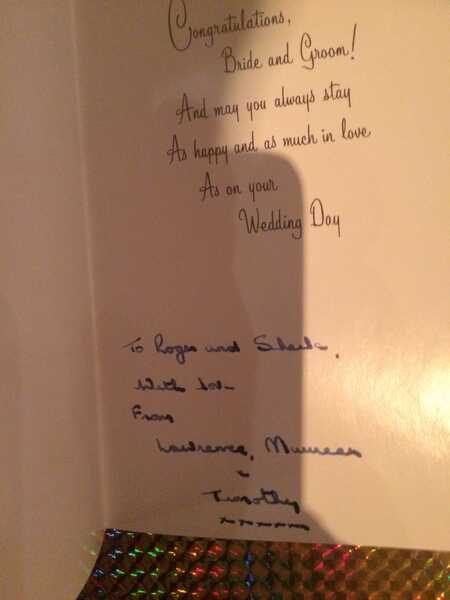 Congratulations,
Bride and Groom!
And may you always stay
As happy and as much in love
As on your
Wedding Day
To Roger and Sheila.
With love
From
Lawrence, Maureen
Timothy
xxxxxx